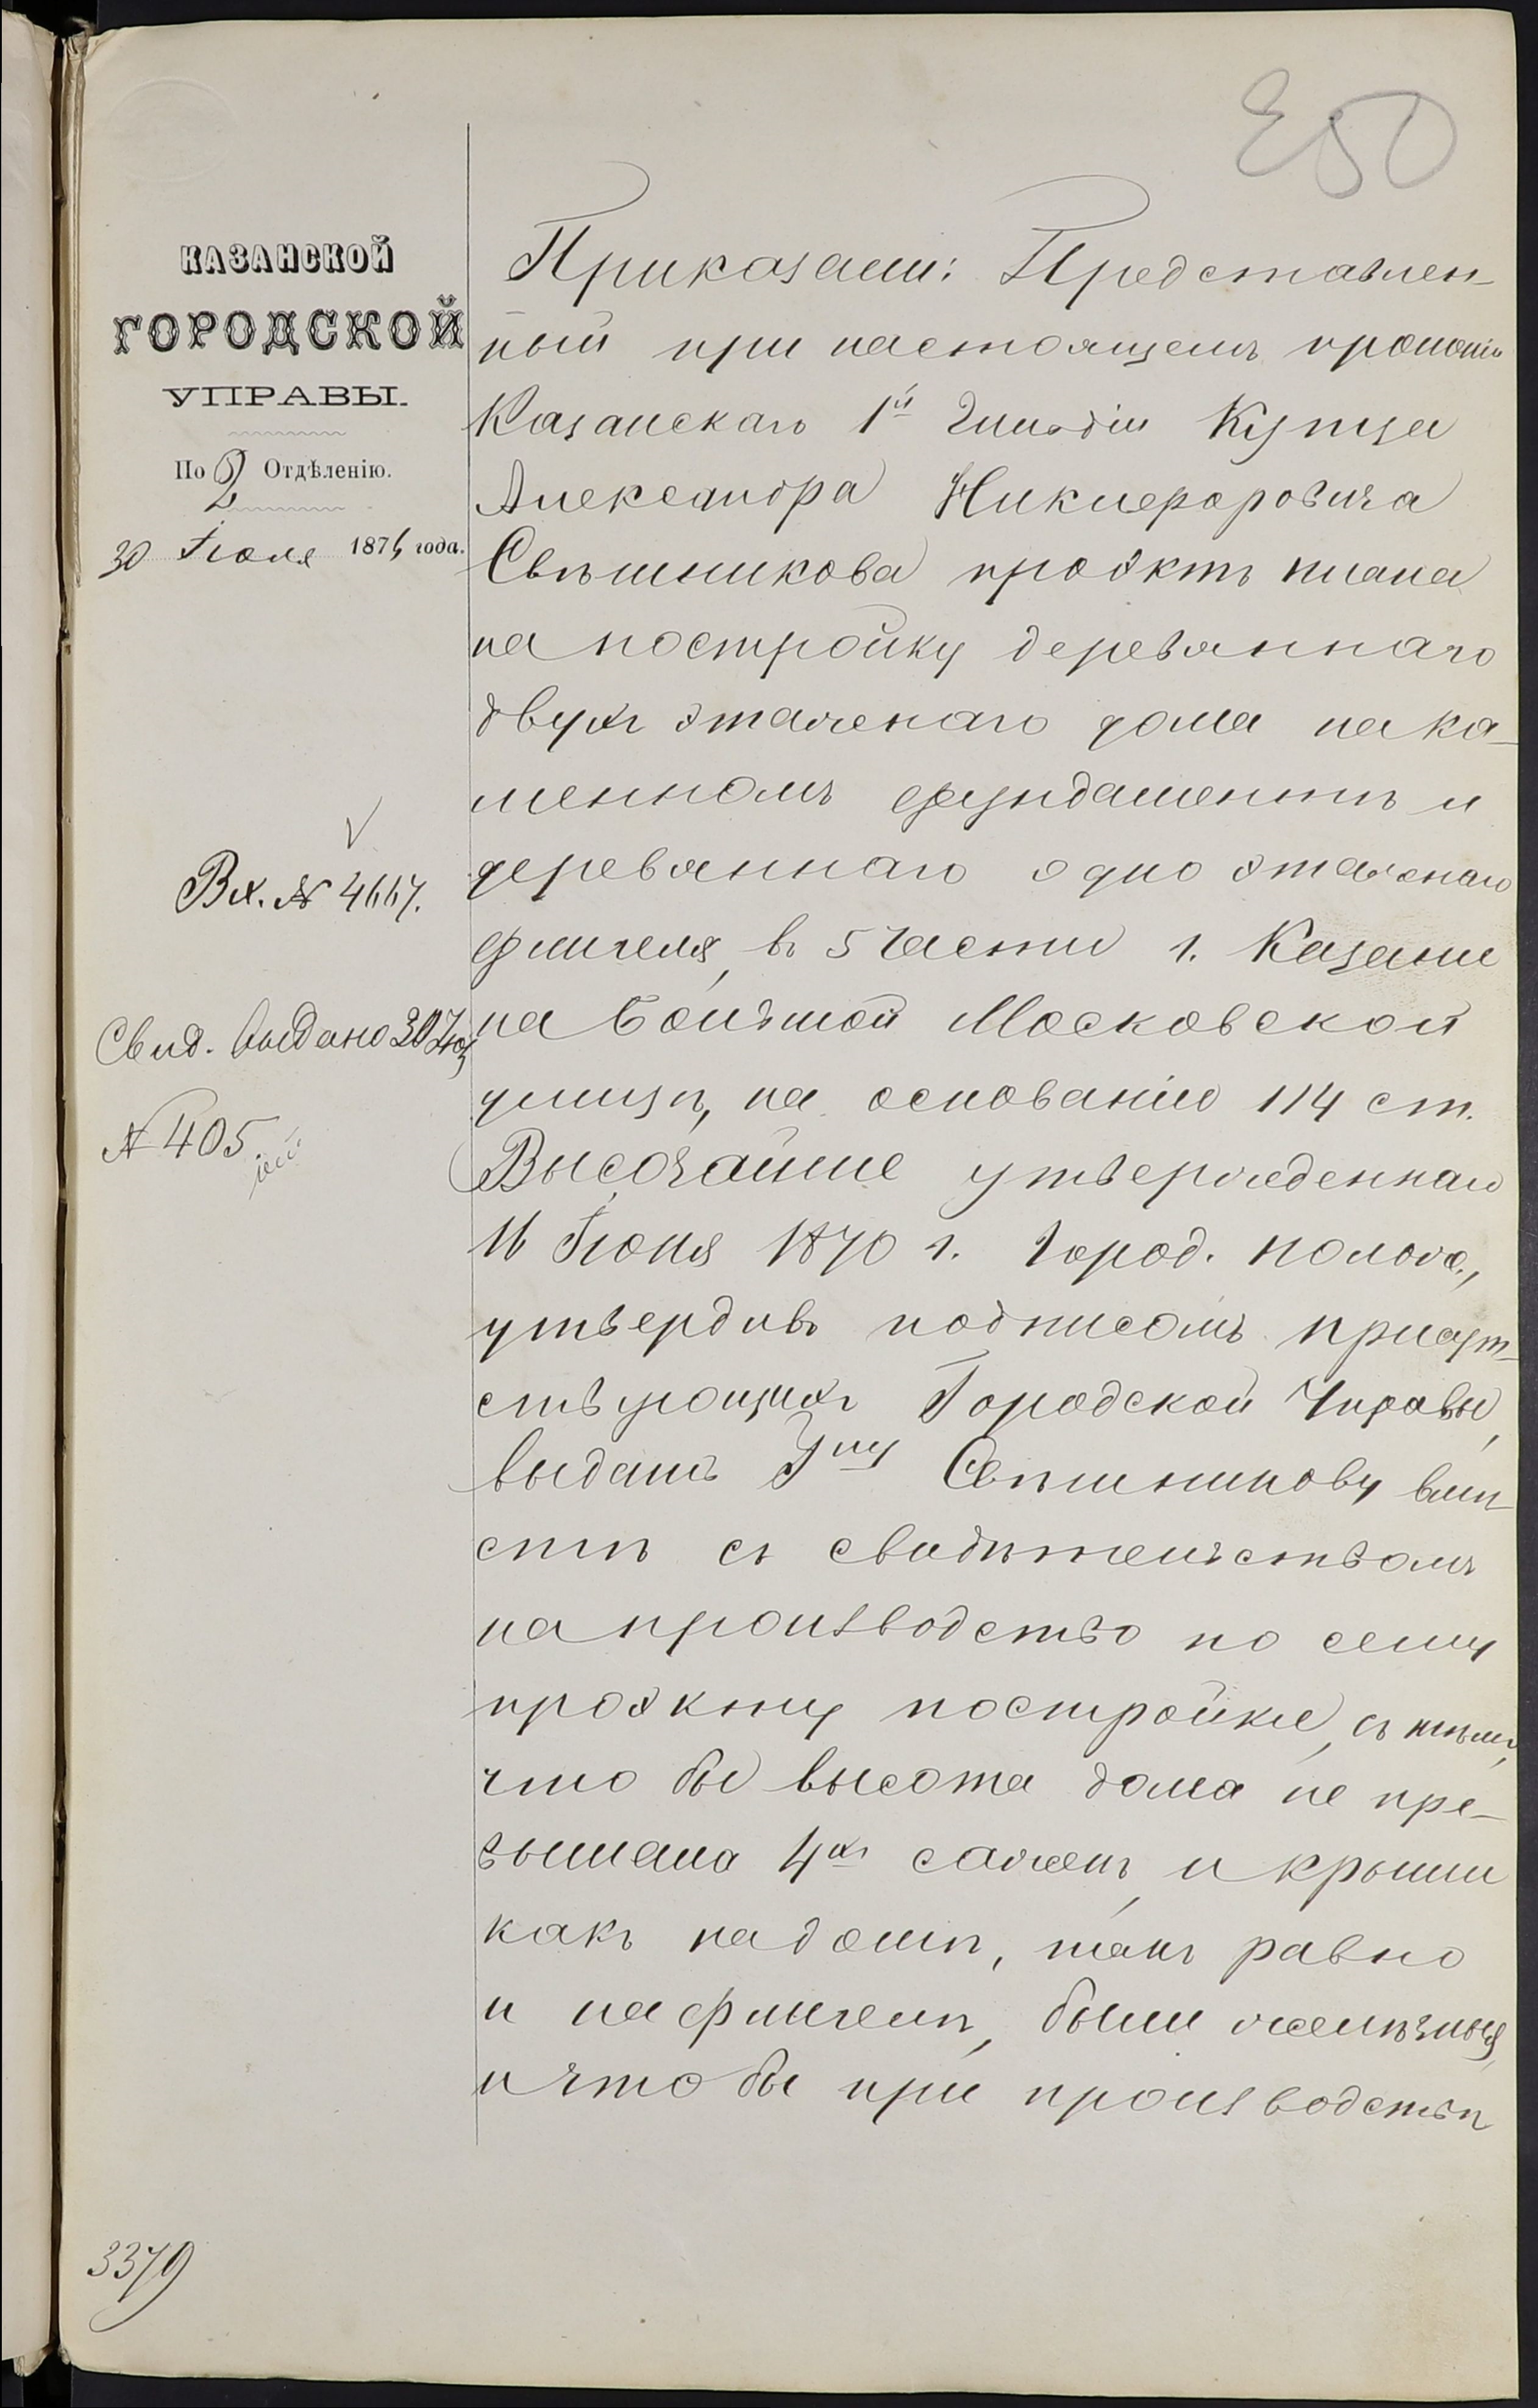 250
КАЗАНСКОЙ
ГОРОДСКОЙ
УПРАВЫ.
По 2 Отдѣленію.
30 Іюля 1874 года.
Вх. № 4667.
Свид. выдано 30 Іюл
№ 405.
3379
Приказали: Представлен-
ный при настоящемъ прошеніи
Казанскаго 1й Гильдіи Купца
Александра Никифоровича
Свѣшникова проэктъ плана
на постройку деревяннаго
двухъ этажнаго дома на ка-
менномъ фундаментѣ и
деревяннаго одно этажнаго
флигеля, въ 5 части г. Казани
на Большой Московской
улицѣ, на основаніи 114 ст.
Высочайше утвержденнаго
16 Іюня 1870 г. Город. полож.,
утвердивъ подписомъ присут-
ствующихъ Городской Управы,
выдать Гну Свѣшникову вмѣ-
стѣ съ свидѣтельствомъ
на производство по сему
проэкту постройки, съ тѣмъ,
что бы высота дома не пре-
вышала 4хъ саженъ, и крыши
какъ на домѣ, такъ равно
и на флигелѣ, были желѣзныя,
и что бы при производствѣ